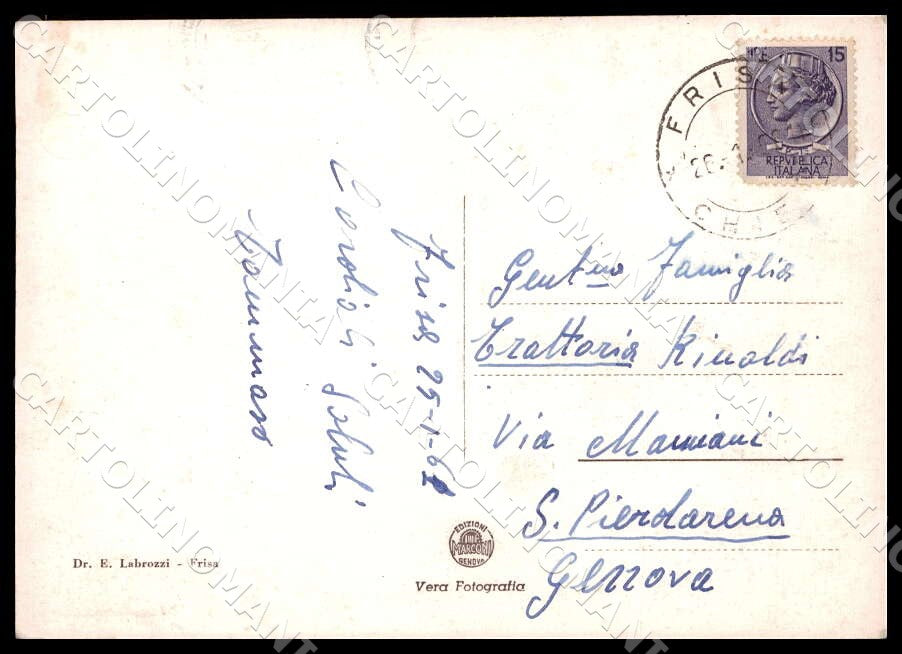 Frisa 25-1-61
Cordiali Saluti
Tommaso
FRISA
CHIETI
26
L. 15
REPVBBLICA
ITALIANA
Gent.ma Famiglia
Trattoria Rinaldi
Via Mamiani
S. Pierdarena
Genova
EDIZIONI
MARCONI
GENOVA
Vera Fotografia
Dr. E. Labrozzi - Frisa
CARTOLINOMANIA